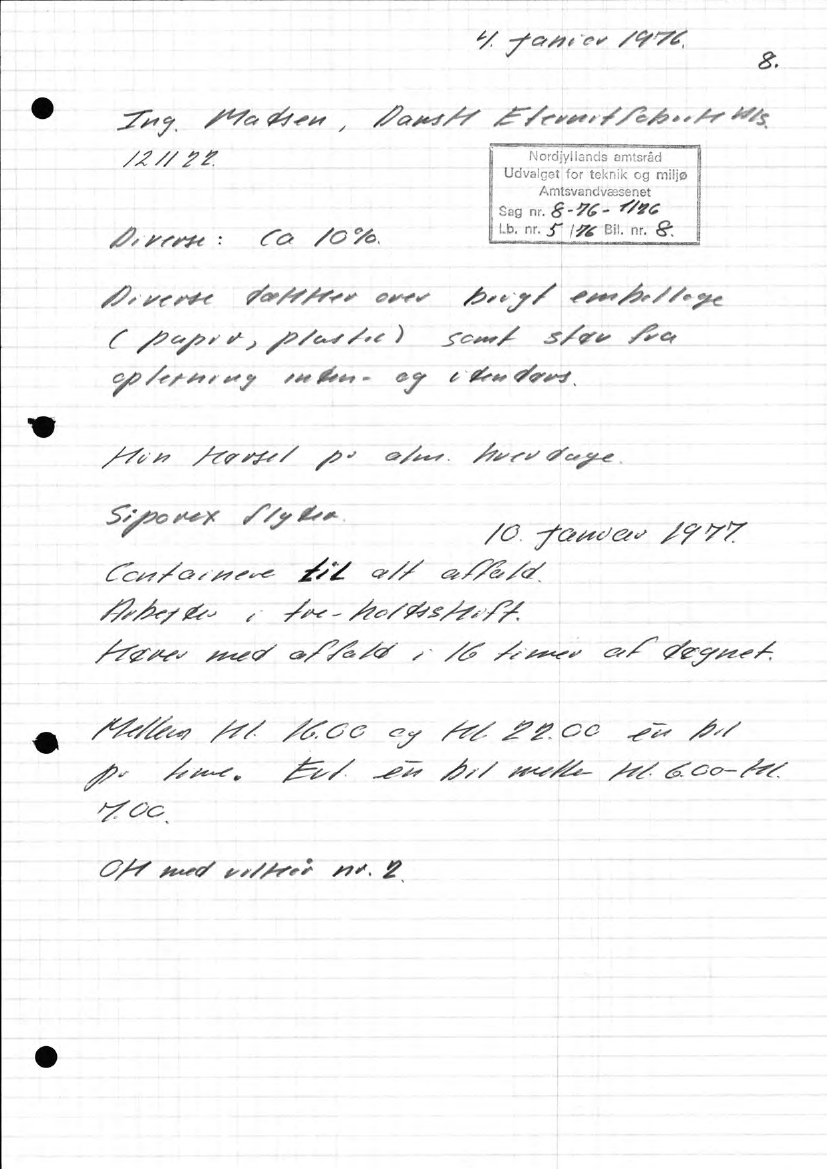 4. januar 1976.
8.
Ing. Madsen, Dansk Eternitfabrik A/s.
12 11 22.
Nordjyllands amtsråd
Udvalget for teknik og miljø
Amtsvandvæsenet
Sag nr. 8-76-1/76
Lb. nr. 5 /76 Bil. nr. 8.
Diverse: Ca 10%.
Diverse dækker over brugt emballage
(papir, plastic) samt støv fra
opfejning inden- og udendørs.
Kun kørsel på alm. hverdage.
Siporex flyder.
10. januar 1977.
Containere til alt affald.
Arbejder i tre-holdsskift.
Kører med affald i 16 timer af døgnet.
Mellem kl. 16.00 og kl. 22.00 én bil
pr time. Evt. én bil mellem kl. 6.00-kl.
7.00.
OK med vilkår nr. 2.